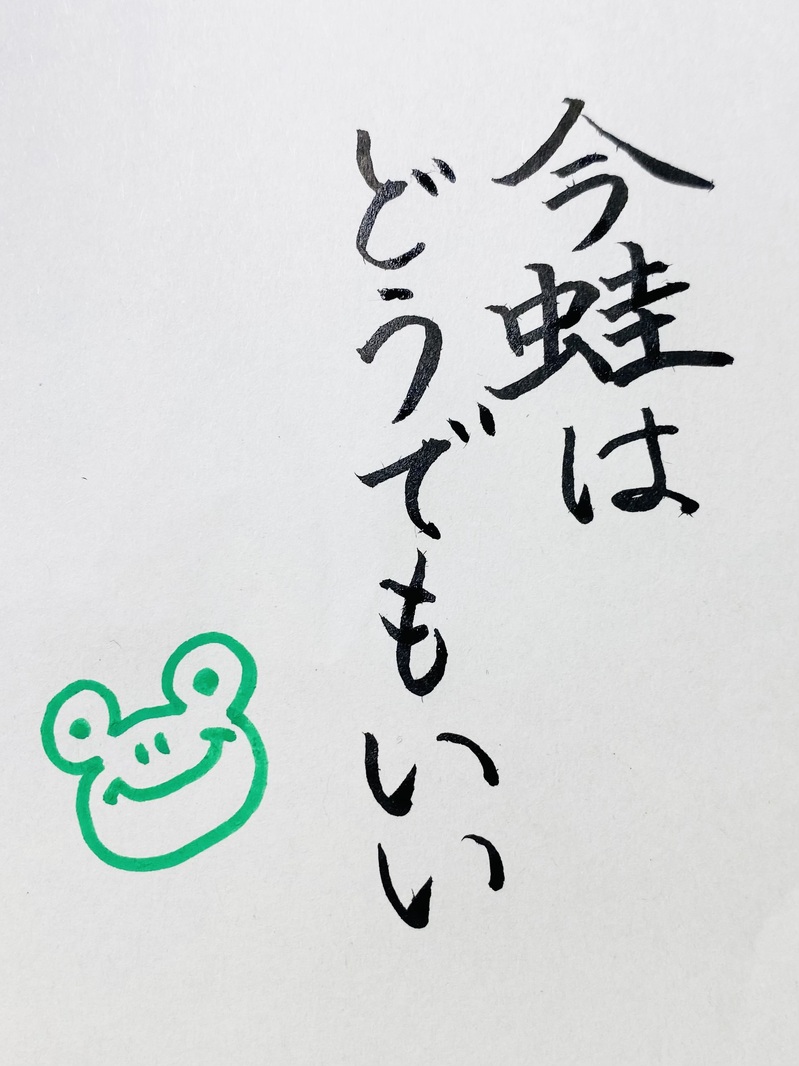 今蛙は
どうでもいい